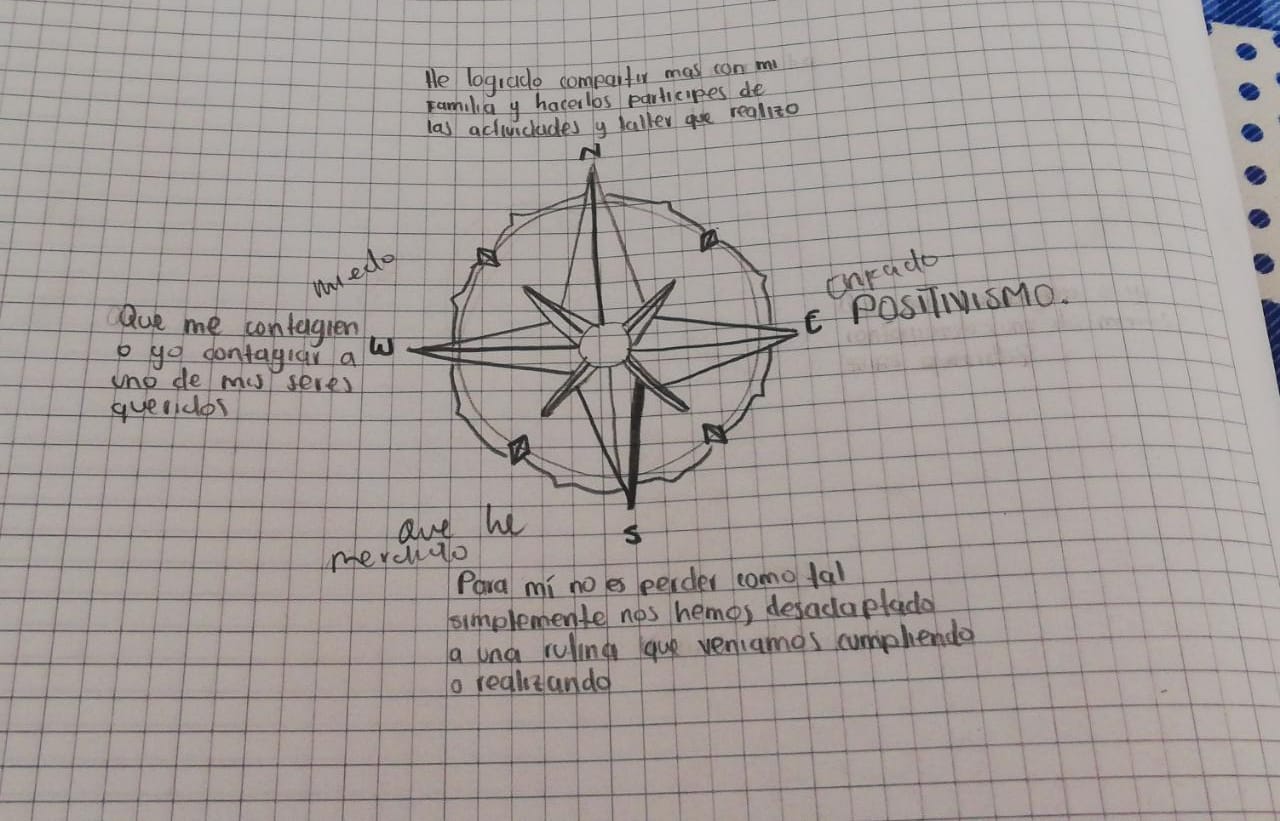 He logrado compartir mas con mi
Familia y hacerlos participes de
las actividades y taller que realizo
N
miedo
Que me contagien
o yo contagiar a
uno de mis seres
queridos
W
E
POSITIVISMO.
S
que he
Para mí no es perder como tal
simplemente nos hemos desadaptado
a una rutina que veniamos cumpliendo
o realizando